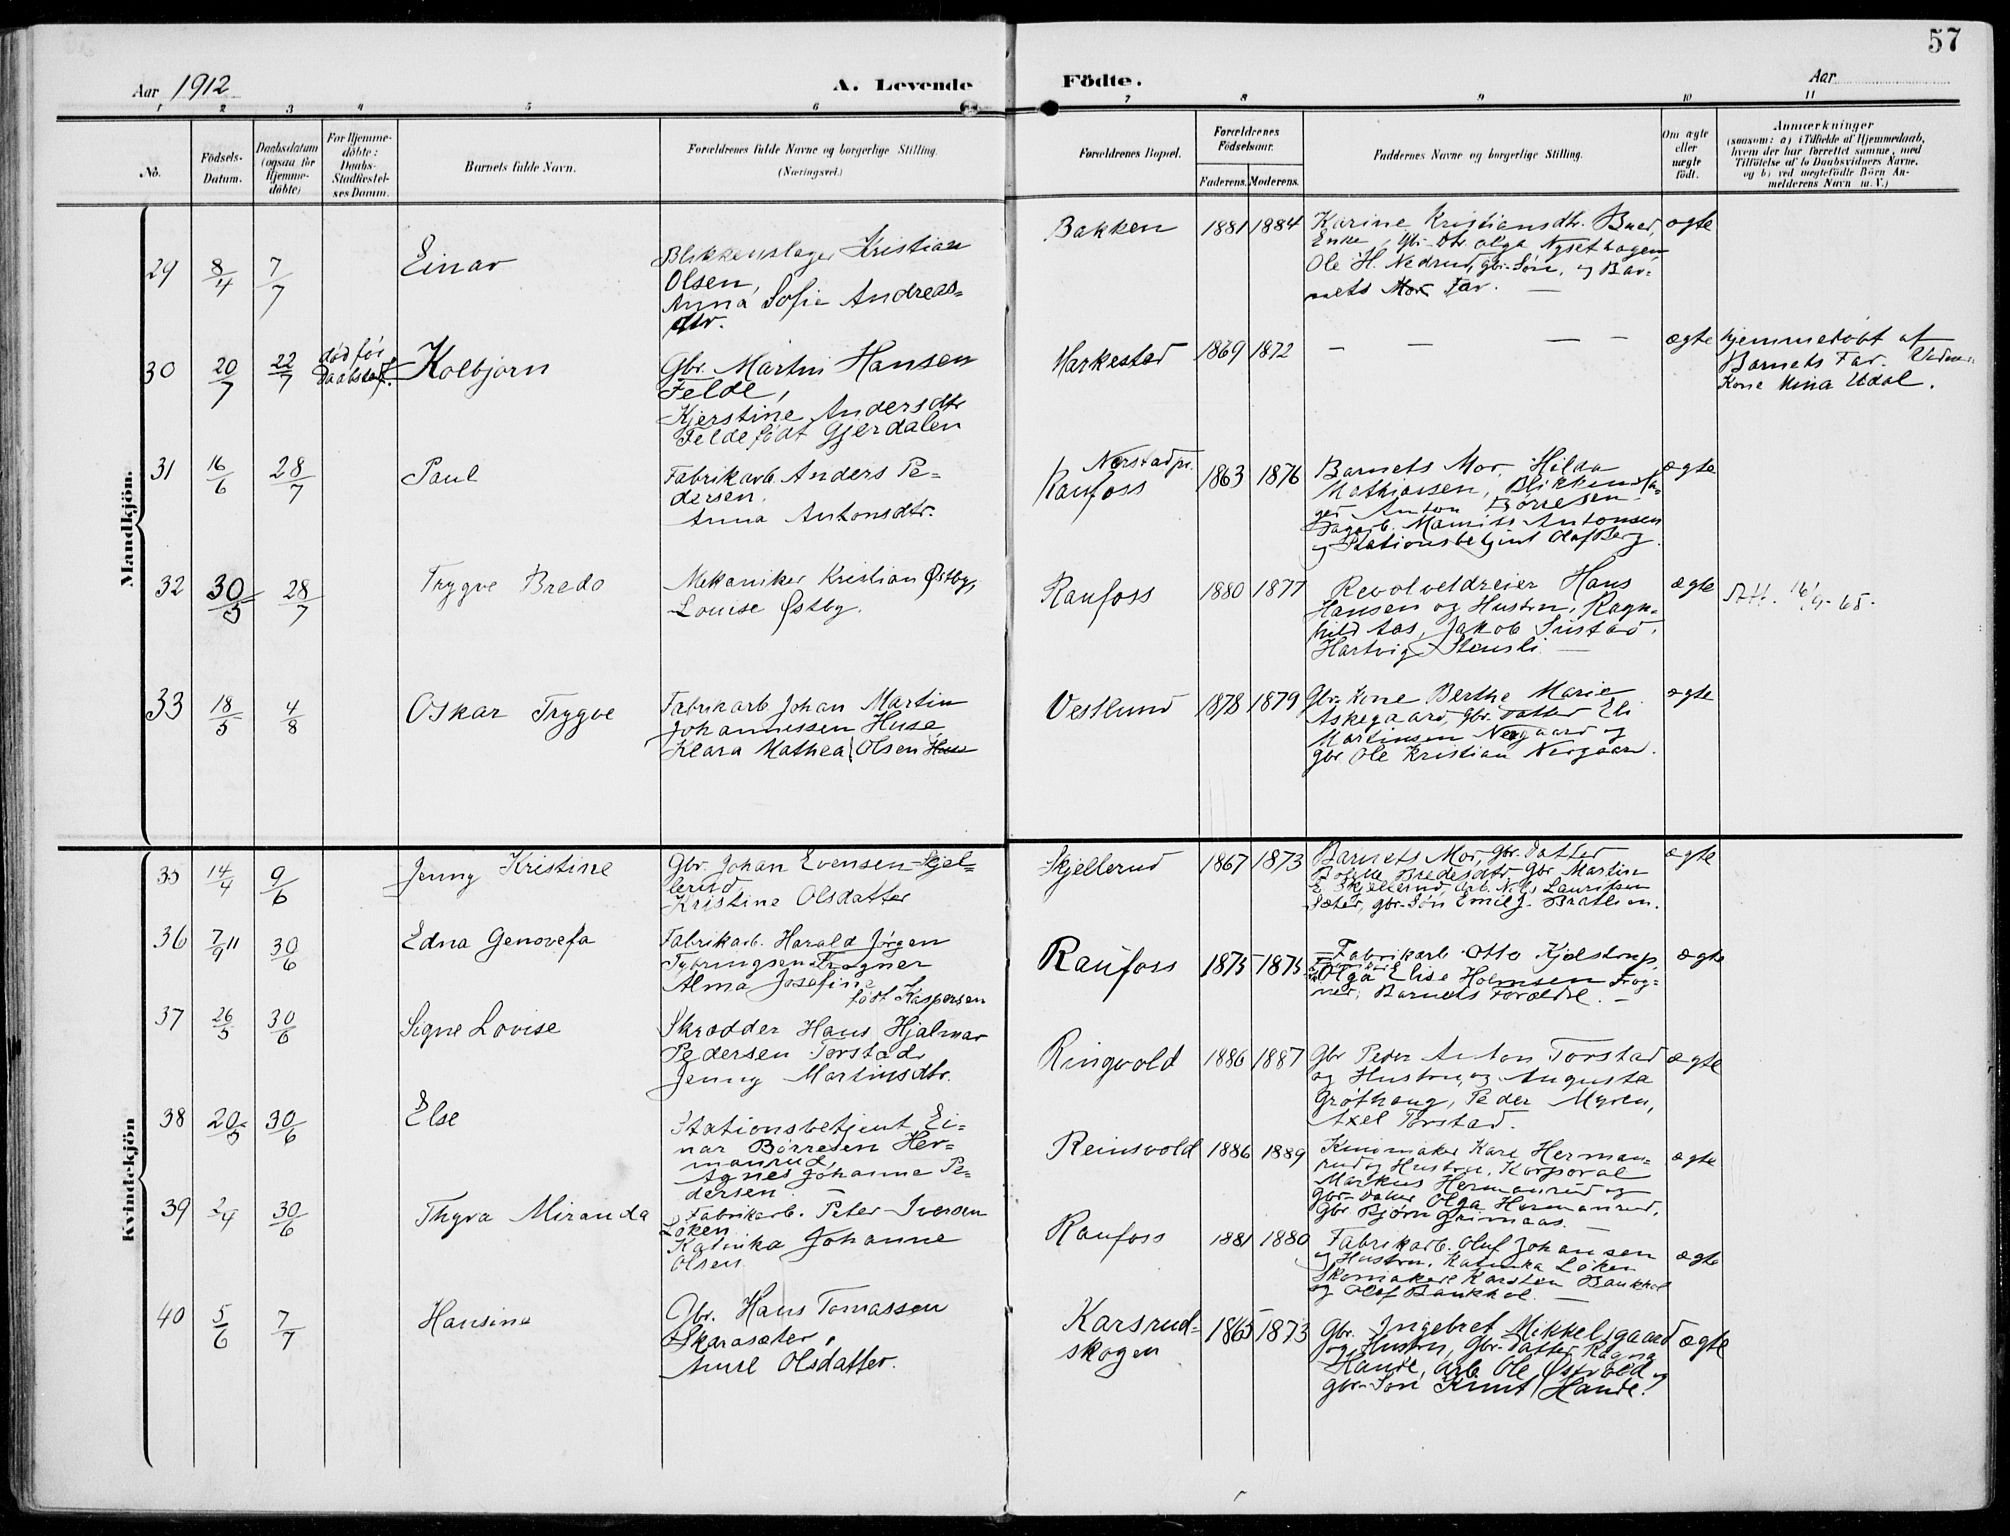 57
Aar 1912
A. Levende
Födte.
Aar
1 2 3 4 5 6 7 8 9 10 11
No.
Födsels-
Datum.
Daabsdatum
(ogsaa for
Hjemme-
döbte)
For Hjemme-
döbte:
Daabs-
Stadfæstel-
ses Datum.
Barnets fulde Navn.
Forældrenes fulde Navne og borgerlige Stilling.
(Næringsvei.)
Forældrenes Bopæl.
Forældrenes
Födselsaar.
Faderens.
Moderens.
Faddernes Navne og borgerlige Stilling.
Om ægte
eller
uægte
födt.
Anmærkninger
(saasom: a) i Tilfælde af Hjemmedaab,
hvem der har forrettet samme, med
Tilföielse af to Daabsvidners Navne.
og b) ved uægtefödte Börn An-
melderens Navn m. V.)
Mandkjön.
29
8/4
7/7
Einar
Blikkenslager Kristian
Olsen,
Anna Sofie Andreas-
dtr.
Bakken
1881
1884
Karine Kristiansdtr.
Enke, Gbr. Dtr. Olga Nysethagen
Ole H. Nedrud, gbr. Søn, og Bar-
nets Mor Far. —
ægte
30
20/7
22/7
død før
Kolbjørn
Gbr. Martin Hansen
Felde,
Kjerstine Andersdtr
Felde født Gjerdalen
Markestad
1869
1872
— — — —
ægte
hjemmedøbt af
Barnets Far.
Kone Mina Udal.
31
16/6
28/7
Paul
Fabrikarb. Anders Pe-
dersen.
Anna Antonsdtr.
Nerstadpr.
Raufoss
1863
1876
Barnets Mor, Hilda
Mathiassen, Blikkensla-
ger Anton Børresen
Dagarb. Antonsen
og Stationsbetjent Olaf Berg.
ægte
32
30/5
28/7
Trygve Bredo
Mekaniker Kristian Østby,
Louise Østby.
Raufoss
1880
1877
Revolveldreier Hans
Hansen og Hustru, Ragn-
hild Aas, Jakob
Hartvig Stensli —
ægte
33
18/5
4/8
Oskar Trygve
Fabrikarb. Johan Martin
Johannessen Huse
Klara Mathea Olsen Huse
Vestlund
1878
1879
Gbr. Kone Berthe Marie
Askegaard, Gbr. Datter Eli
Martinsen Nergaard og
gbr. Ole Kristian Nergaard.
ægte
Kvindekjön
35
14/4
9/6
Jenny Kristine
Gbr. Johan Evensen Skjel-
lerud
Kristine Olsdatter
Skjellerud
1867
1873
Barnets Mor, Gbr. Datter
Bredesdtr Gbr Martin
E. Skjellerud, Arb. Lauritsen
Sæter, gbr. Søn Emil J. Bratlien.
ægte
36
7/9 11
30/6
Edna Genovefa
Fabrikarb. Harald Jørgen
Frogner
Alma Josefine
født Kaspersen
Raufoss
1875
1875
Fabrikarb. Otto Kjølstrup,
Olga Elise Holmsen Frog-
ner, Barnets Forældre. —
ægte
37
26/5
30/6
Signe Lovise
Skrædder Hans Hjalmar
Pedersen Torstad
Jenny Martinsdtr.
Ringvold
1886
1887
Gbr Peder Anton Torstad
og Hustru, og Augusta
Grøthaug, Peder Myren,
Axel Torstad.
ægte
38
20/5
30/6
Else
Stationsbetjent Ei-
nar Børresen Her-
manrud,
Agnes Johanne Pe-
dersen.
Reinsvold
1886
1889
Karl Herman-
rud og Hustru, Korporal
Markus Hermanrud og
Gbr. Datter Olga Hermanrud.
Gbr Bjørn Grimaas. —
ægte
39
2/4
30/6
Thyra Miranda
Fabrikarb. Peter Iversen
Løken
Katinka Johanne
Olsen
Raufoss
1881
1880
Fabrikarb. Oluf Johansen
og Hustru, Katinka Løken
Skomaker Karsten Baukhol
og Olaf Baukhol. —
ægte
40
5/6
7/7
Hansine
Gbr. Hans Tomassen
Skarasæter,
Anne Olsdatter.
Karsrud-
skogen
1865
1873
Gbr. Ingebret Mikkelsgaard
og Hustru, Gbr. Datter Ragna
Hande, Arb. Ole Østvold og
gbr-Søn Knut Hande.
ægte